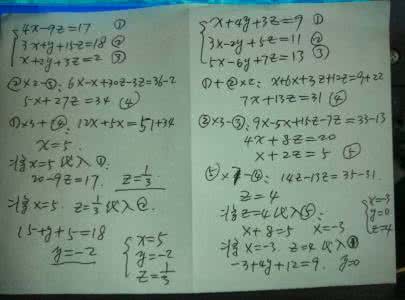 4x-9z=17 ①
3x+y+15z=18 ②
x+2y+3z=2 ③
②×2-③: 6x-x+30z-3z=36-2
5x+27z=34 ④
①×3+④: 12x+5x=51+34
x=5.
将x=5代入①.
20-9z=17. z=1/3
将x=5. z=1/3代入②.
15+y+5=18
y=-2
x=5
y=-2
z=1/3
x+4y+3z=9 ①
3x-2y+5z=11 ②
5x-6y+7z=13 ③
①+②×2: x+6x+3z+10z=9+22
7x+13z=31 ④
②×3-③: 9x-5x+15z-7z=33-13
4x+8z=20
x+2z=5 ⑤
⑤×7-④: 14z-13z=35-31.
z=4
将z=4代入⑤:
x+8=5 x=-3
将x=-3. z=4代入①
-3+4y+12=9. y=0
x=-3
y=0
z=4